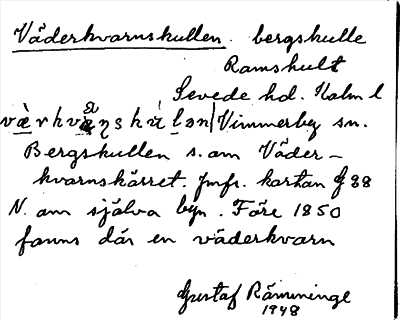 Väderkvarnskullen. bergskulle
Ramshult
Sevede hd. Kalm l
Vimmerby sn.
Bergskullen s. om Väder-
kvarnskärret. Jmfr. kartan G 88
N. om själva byn. Före 1850
fanns där en väderkvarn
Gustaf Rämminge
1948